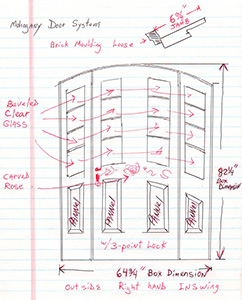 Mahogany Door System
6 9/16"
JAMB
Brick Moulding Loose
Beveled
Clear
GLASS
CARVED
ROSE
82 1/4"
Box Dimension
PANEL
PANEL
PANEL
PANEL
w/3-point Lock
64 3/4" Box Dimension
Outside Right hand Inswing